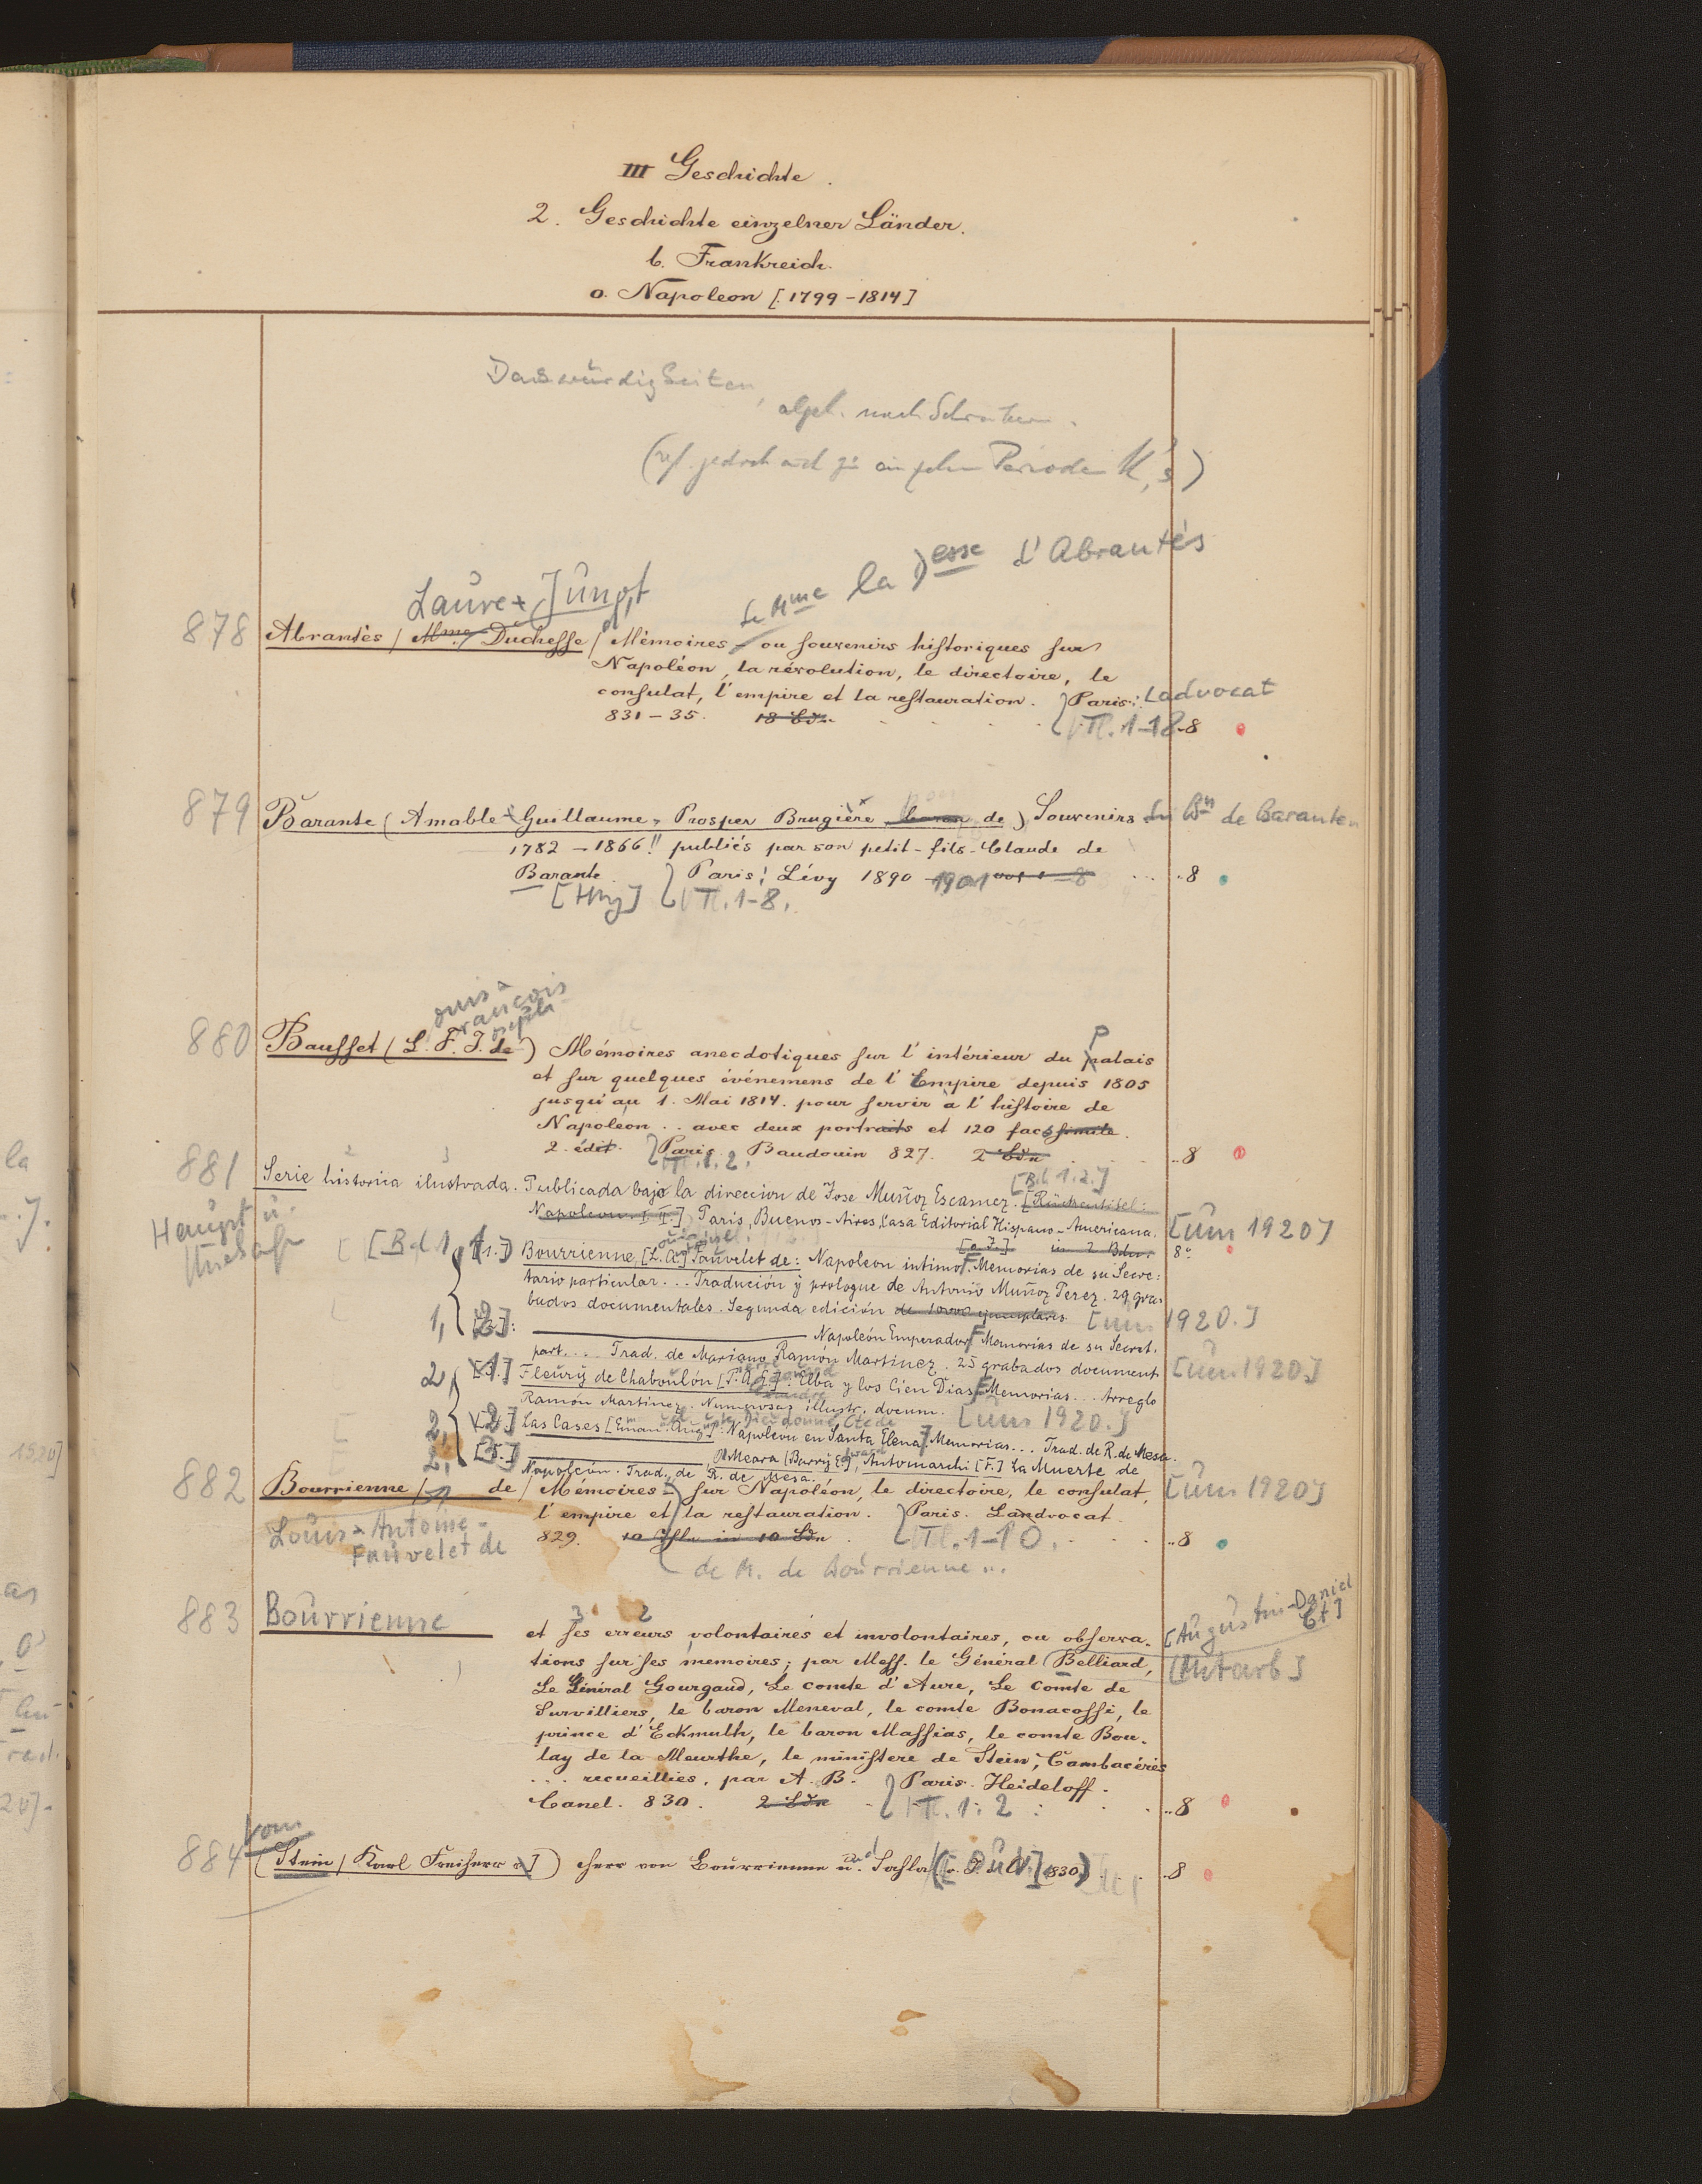 III Geschichte.
2. Geschichte einzelner Länder.
b. Frankreich.
o. Napoleon [1799-1814]
alph. nach
(vf. jedoch Perioden N's)
Laure Junot
de Mme la Desse d'Abrantés
878 Abrantés / Mme / Duchesse / Mémoires ou souvenirs historiques sur
Napoléon, la révolution, le directoire, le
consulat, l'empire et la restauration. Paris: Ladvocat
831-35. 18 Bdn. Tl. 1-18. 8
879 Barante (Amable Guillaume, Prosper Brugière baron de) Souvenirs du Bn de Barante
1782-1866!! publiés par son petit-fils Claude de
Barante. Paris: Lévy 1890 - 1901 8
[Hrsg] Tl. 1-8.
ouis
rançois
oseph
880 Bausset (L. F. J. de) Mémoires anecdotiques sur l'intérieur du palais
et sur quelques événemens de l'Empire depuis 1805
jusqu'au 1. Mai 1814. pour servir à l'histoire de
Napoleon .. avec deux portraits et 120 facsimile.
2. édit. Paris Baudouin 827. 2 Bdn 8
Tl. 1. 2.
881 Serie historica ilustrada. Publicada bajo la direccion de Jose Muñoz Escamez. [Rückentitel:
[Bd. 1.2.]
Napoleon. I-II.] Paris, Buenos-Aires, Casa Editorial Hispano-Americana. [um 1920]
Haupt u.
[o. J.] in 2 Bdn. 8°
[Bd 1, 1.] Bourrienne, [L. A.] Fauvelet de: Napoleon intimo. Memorias de su Secre:
tario particular... Tradución y prologue de Antonio Muñoz Perez. 29 gra-
bados documentales. Segunda edición de 10000 ejemplares. [um 1920.]
1, [2.]: Napoleón Emperador. Memorias de su Secret.
part.... Trad. de Mariano Ramón Martinez. 25 grabados document. [um 1920]
2, [1.] Fleury de Chaboulón [P. A. E.]: Elba y los Cien Dias. Memorias... Arreglo
Ramón Martinez. Numerosas illustr. docum. [um 1920.]
2, [2.] Las Cases [Eman. Aug.]: Napoleon en Santa Elena. Memorias... Trad. de R. de Mesa.
2, [3.] , O'Meara [Barry E.], Automarchi [F.] La Muerte de
Napoleón. Trad. de R. de Mesa.
882 Bourrienne / de / Mémoires sur Napoléon, le directoire, le consulat, [um 1920]
l'empire et la restauration. Paris. Landvocat
Louis Antoine
Fauvelet de
829. 10 in 10 Bdn Tl. 1-10. 8
de M. de Bourrienne ...
883 Bourrienne et ses erreurs volontaires et involontaires, ou observa- [Augustin-Daniel Ct]
tions sur ses mémoires; par Mess. le Général Belliard, [Mitarb]
Le Général Gourgaud, Le comte d'Aure, Le Comte de
Survilliers, le baron Meneval, le comte Bonacossi, le
prince d'Eckmulh, le baron Massias, le comte Bou-
lay de la Meurthe, le ministere de Stein, Cambacérès
... recueillies, par A. B. Paris. Heideloff.
Canel. 830. 2 Bdn Tl. 1. 2 8
vom
884 (Stein / Karl Freiherr v] ) Herr von Bourrienne u. Sahla 830) 8